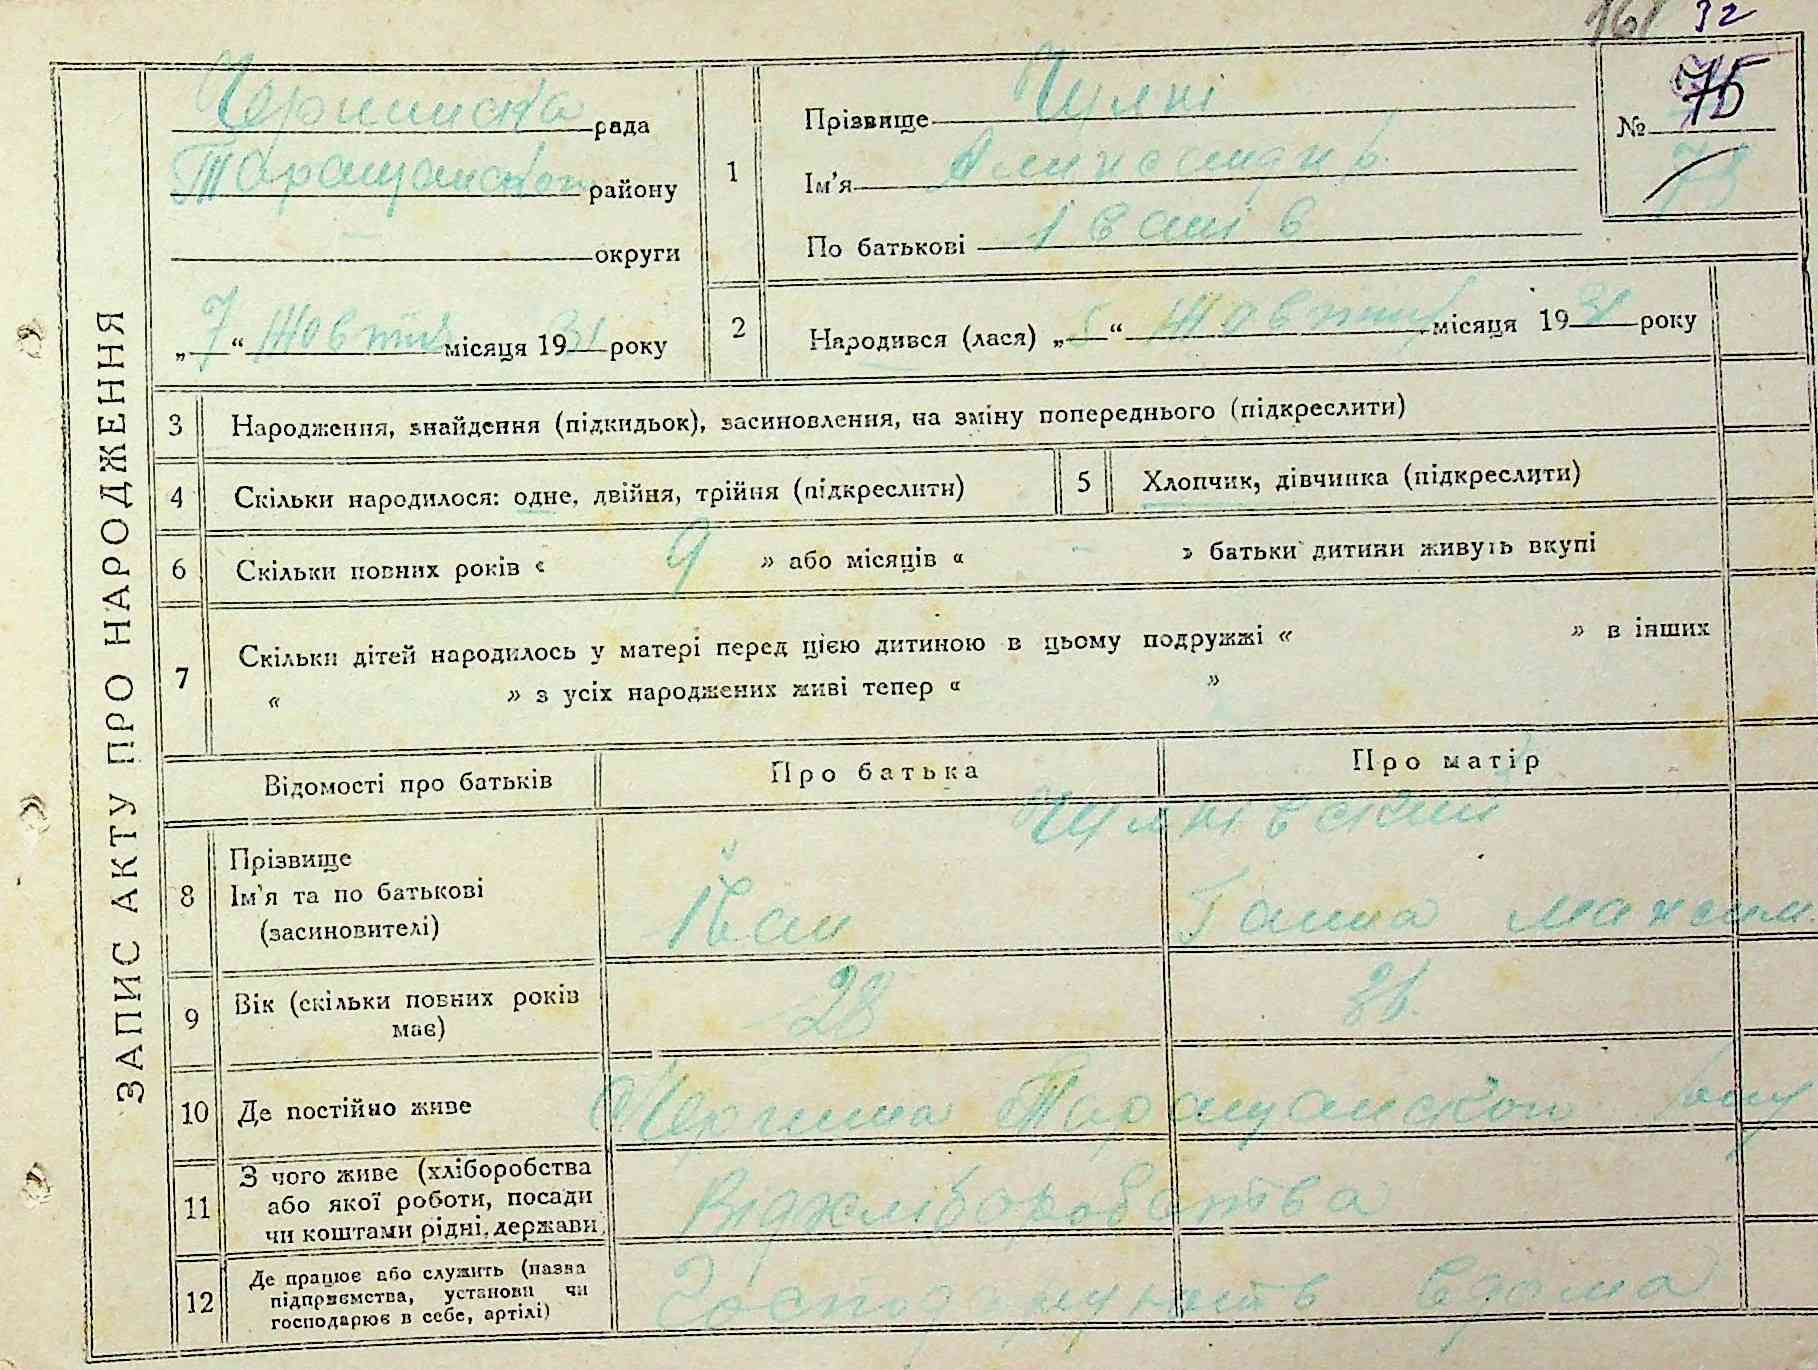 161 32
ЗАПИС АКТУ ПРО НАРОДЖЕННЯ
рада
Таращанского району
— округи
„7“ Жовтня місяця 1931 року
1
Прізвище
Ім'я
По батькові Іванів
№ 75
2
Народився (лася) „5“ Жовтня місяця 1931 року
3
Народження, знайдення (підкидьок), засиновлення, на зміну попереднього (підкреслити)
4
Скільки народилося: одне, двійня, трійня (підкреслити)
5
Хлопчик, дівчинка (підкреслити)
6
Скільки повних років « 9 » або місяців « — » батьки дитини живуть вкупі
7
Скільки дітей народилось у матері перед цією дитиною в цьому подружжі « » в інших
« » з усіх народжених живі тепер « »
Відомості про батьків
Про батька
Про матір
8
Прізвище
Ім'я та по батькові
(засиновителі)
Іван
Ганна Максим
9
Вік (скільки повних років
має)
28
10
Де постійно живе
Таращанского
11
З чого живе (хліборобства
або якої роботи, посади
чи коштами рідні, держави
Відхліборобства
12
Де працює або служить (назва
підприємства, установи чи
господарює в себе, артілі)
вдома